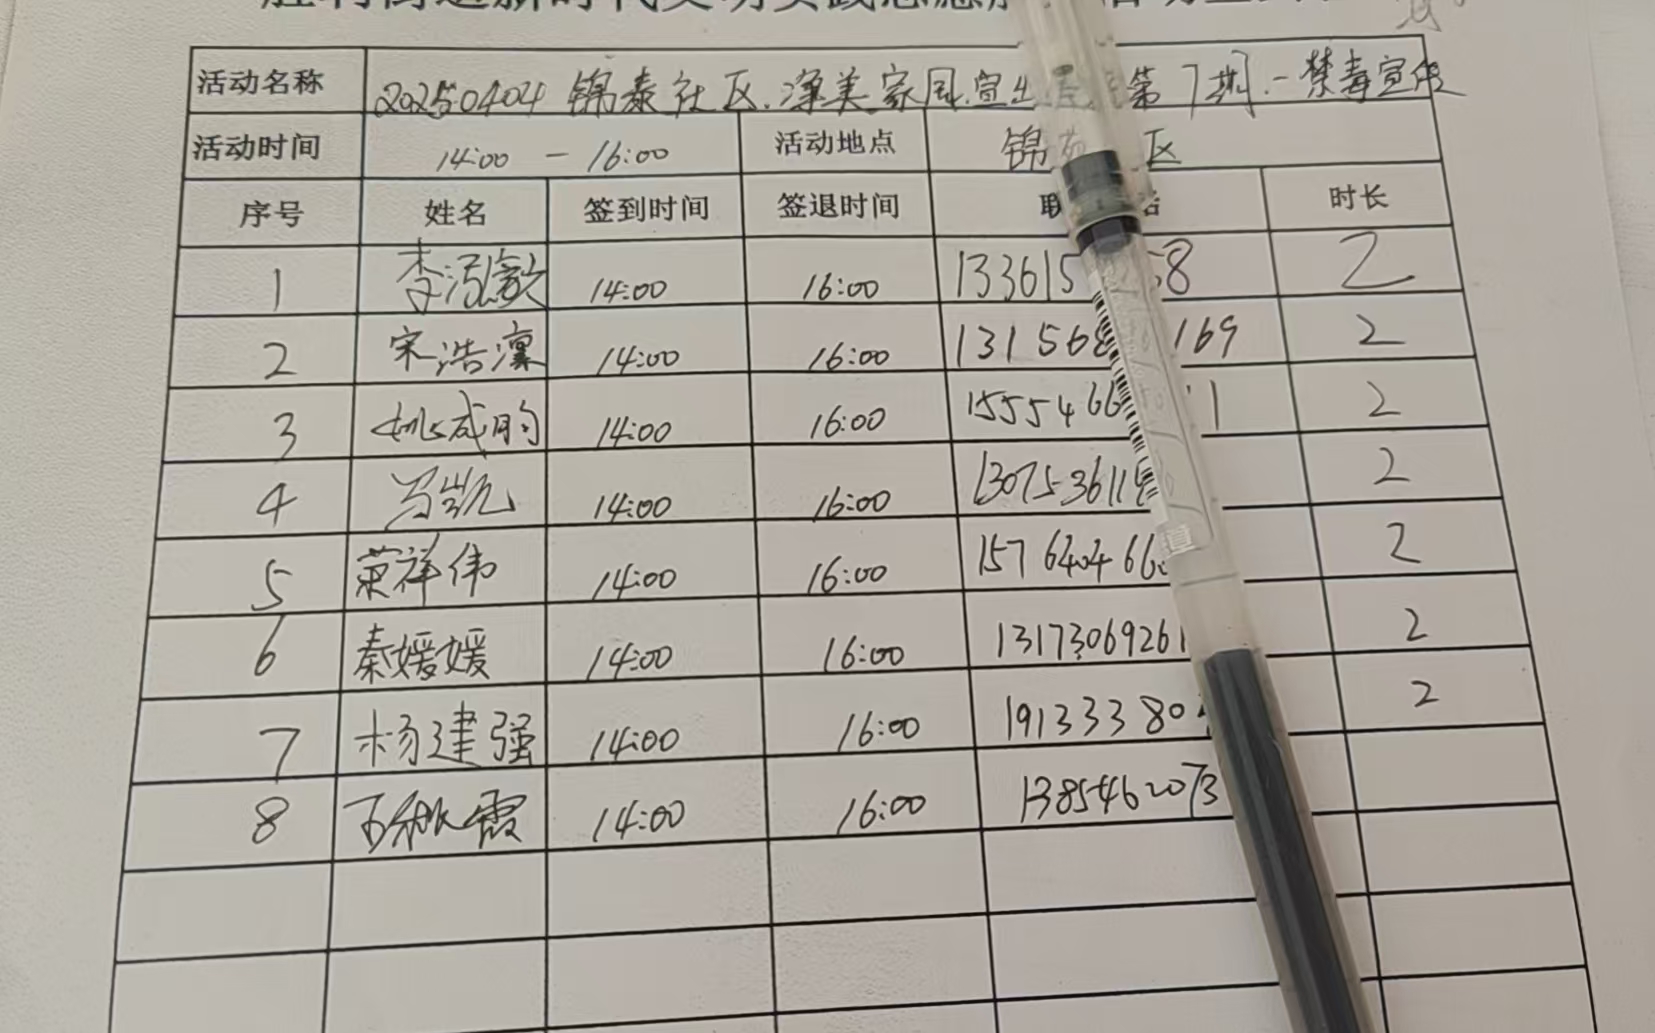 胜利街道新时代文明实践志愿服 活动
活动名称 20250404 锦泰社区.净美家园.宣 第7期.-禁毒宣传
活动时间 14:00 - 16:00 活动地点 锦 区
序号 姓名 签到时间 签退时间 联 话 时长
1 李 14:00 16:00 133615 68 2
2 宋浩凛 14:00 16:00 131568 169 2
3 姚成昀 14:00 16:00 1555466 1 2
4 冯凯 14:00 16:00 130753611 2
5 荣祥伟 14:00 16:00 157640466 2
6 秦媛媛 14:00 16:00 1317306926 2
7 杨建强 14:00 16:00 19133380 2
8 石秋霞 14:00 16:00 13854622073